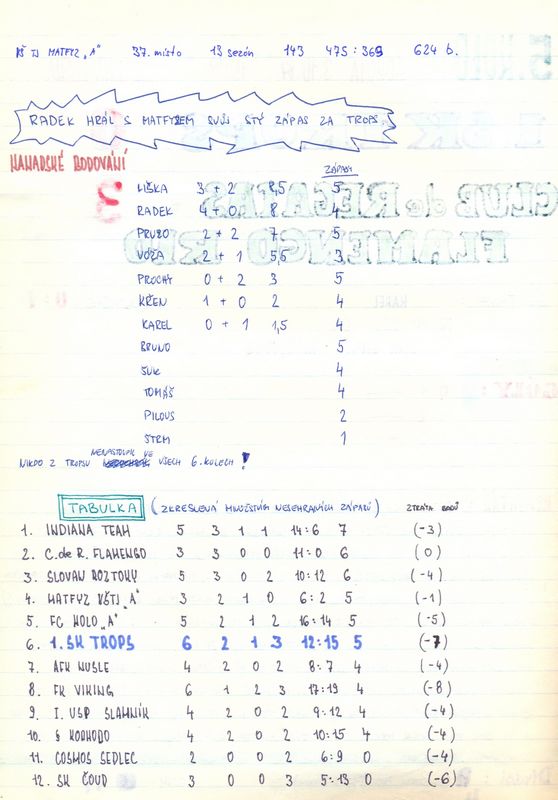 TJ MATFYZ „A" 37. místo 13 sezón 143 475:369 624 b.
RADEK HRÁL S MATFYZEM SVŮJ STÝ ZÁPAS ZA TROPS
KANADSKÉ BODOVÁNÍ
ZÁPASY
LIŠKA 3 + 2 8,5 5
RADEK 4 + 0 8 4
PRUŽO 2 + 2 7 5
VÓŽA 2 + 1 5,5 3
PROCHY 0 + 2 3 5
KŘEN 1 + 0 2 4
KAREL 0 + 1 1,5 4
BRUNO 5
ŠUK 4
TOMÁŠ 4
PILOUS 2
STRM 1
NIKDO Z TROPSU NENASTOUPIL VE VŠECH 6. KOLECH!
TABULKA (ZKRESLENÁ MNOŽSTVÍM NESEHRANÝCH ZÁPASŮ) ZTRÁTA BODŮ
1. INDIANA TEAM 5 3 1 1 14:6 7 (-3)
2. C. de R. FLAMENGO 3 3 0 0 11:0 6 (0)
3. SLOVAN ROZTOKY 5 3 0 2 10:12 6 (-4)
4. MATFYZ VŠTJ „A" 3 2 1 0 6:2 5 (-1)
5. FC HOLO „A" 5 2 1 2 16:14 5 (-5)
6. 1. SK TROPS 6 2 1 3 12:15 5 (-7)
7. AFK NUSLE 4 2 0 2 8:7 4 (-4)
8. FK VIKING 6 1 2 3 17:19 4 (-8)
9. I. USP SLAMNÍK 4 2 0 2 9:12 4 (-4)
10. KOPHODO 4 2 0 2 10:15 4 (-4)
11. COSMOS SEDLEC 2 0 0 2 6:9 0 (-4)
12. SK ČOUD 3 0 0 3 5:13 0 (-6)